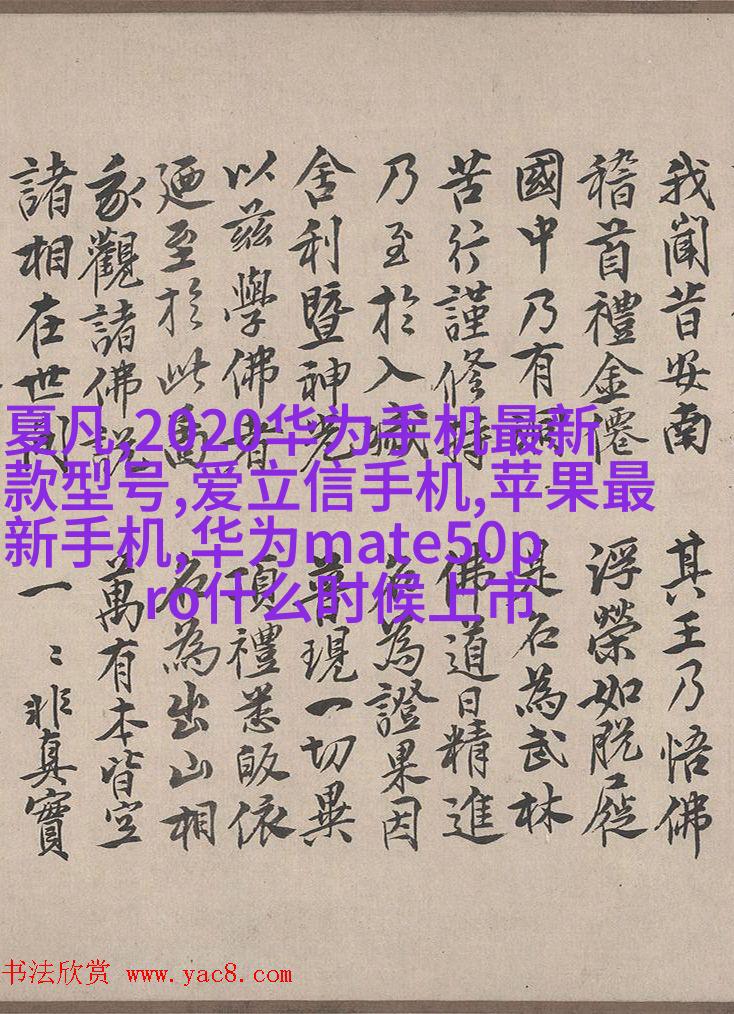 我聞昔安南 其王乃悟佛
稽首禮金僊 浮榮如脫屣
國中乃有 是名為武林
苦行謹修持 佛道日精進
乃至於入 名為證果因
舍利暨神光 普現一切異
以兹學佛者 頂禮悉皈依
廼至於此 名為出山相
我觀諸佛說 萬有本皆空
諸相在世間 一〻非真實
夏凡,2020华为手机最新
款型号,爱立信手机,苹果最
新手机,华为mate50p
ro什么时候上市
书法欣赏 www.yac8.com